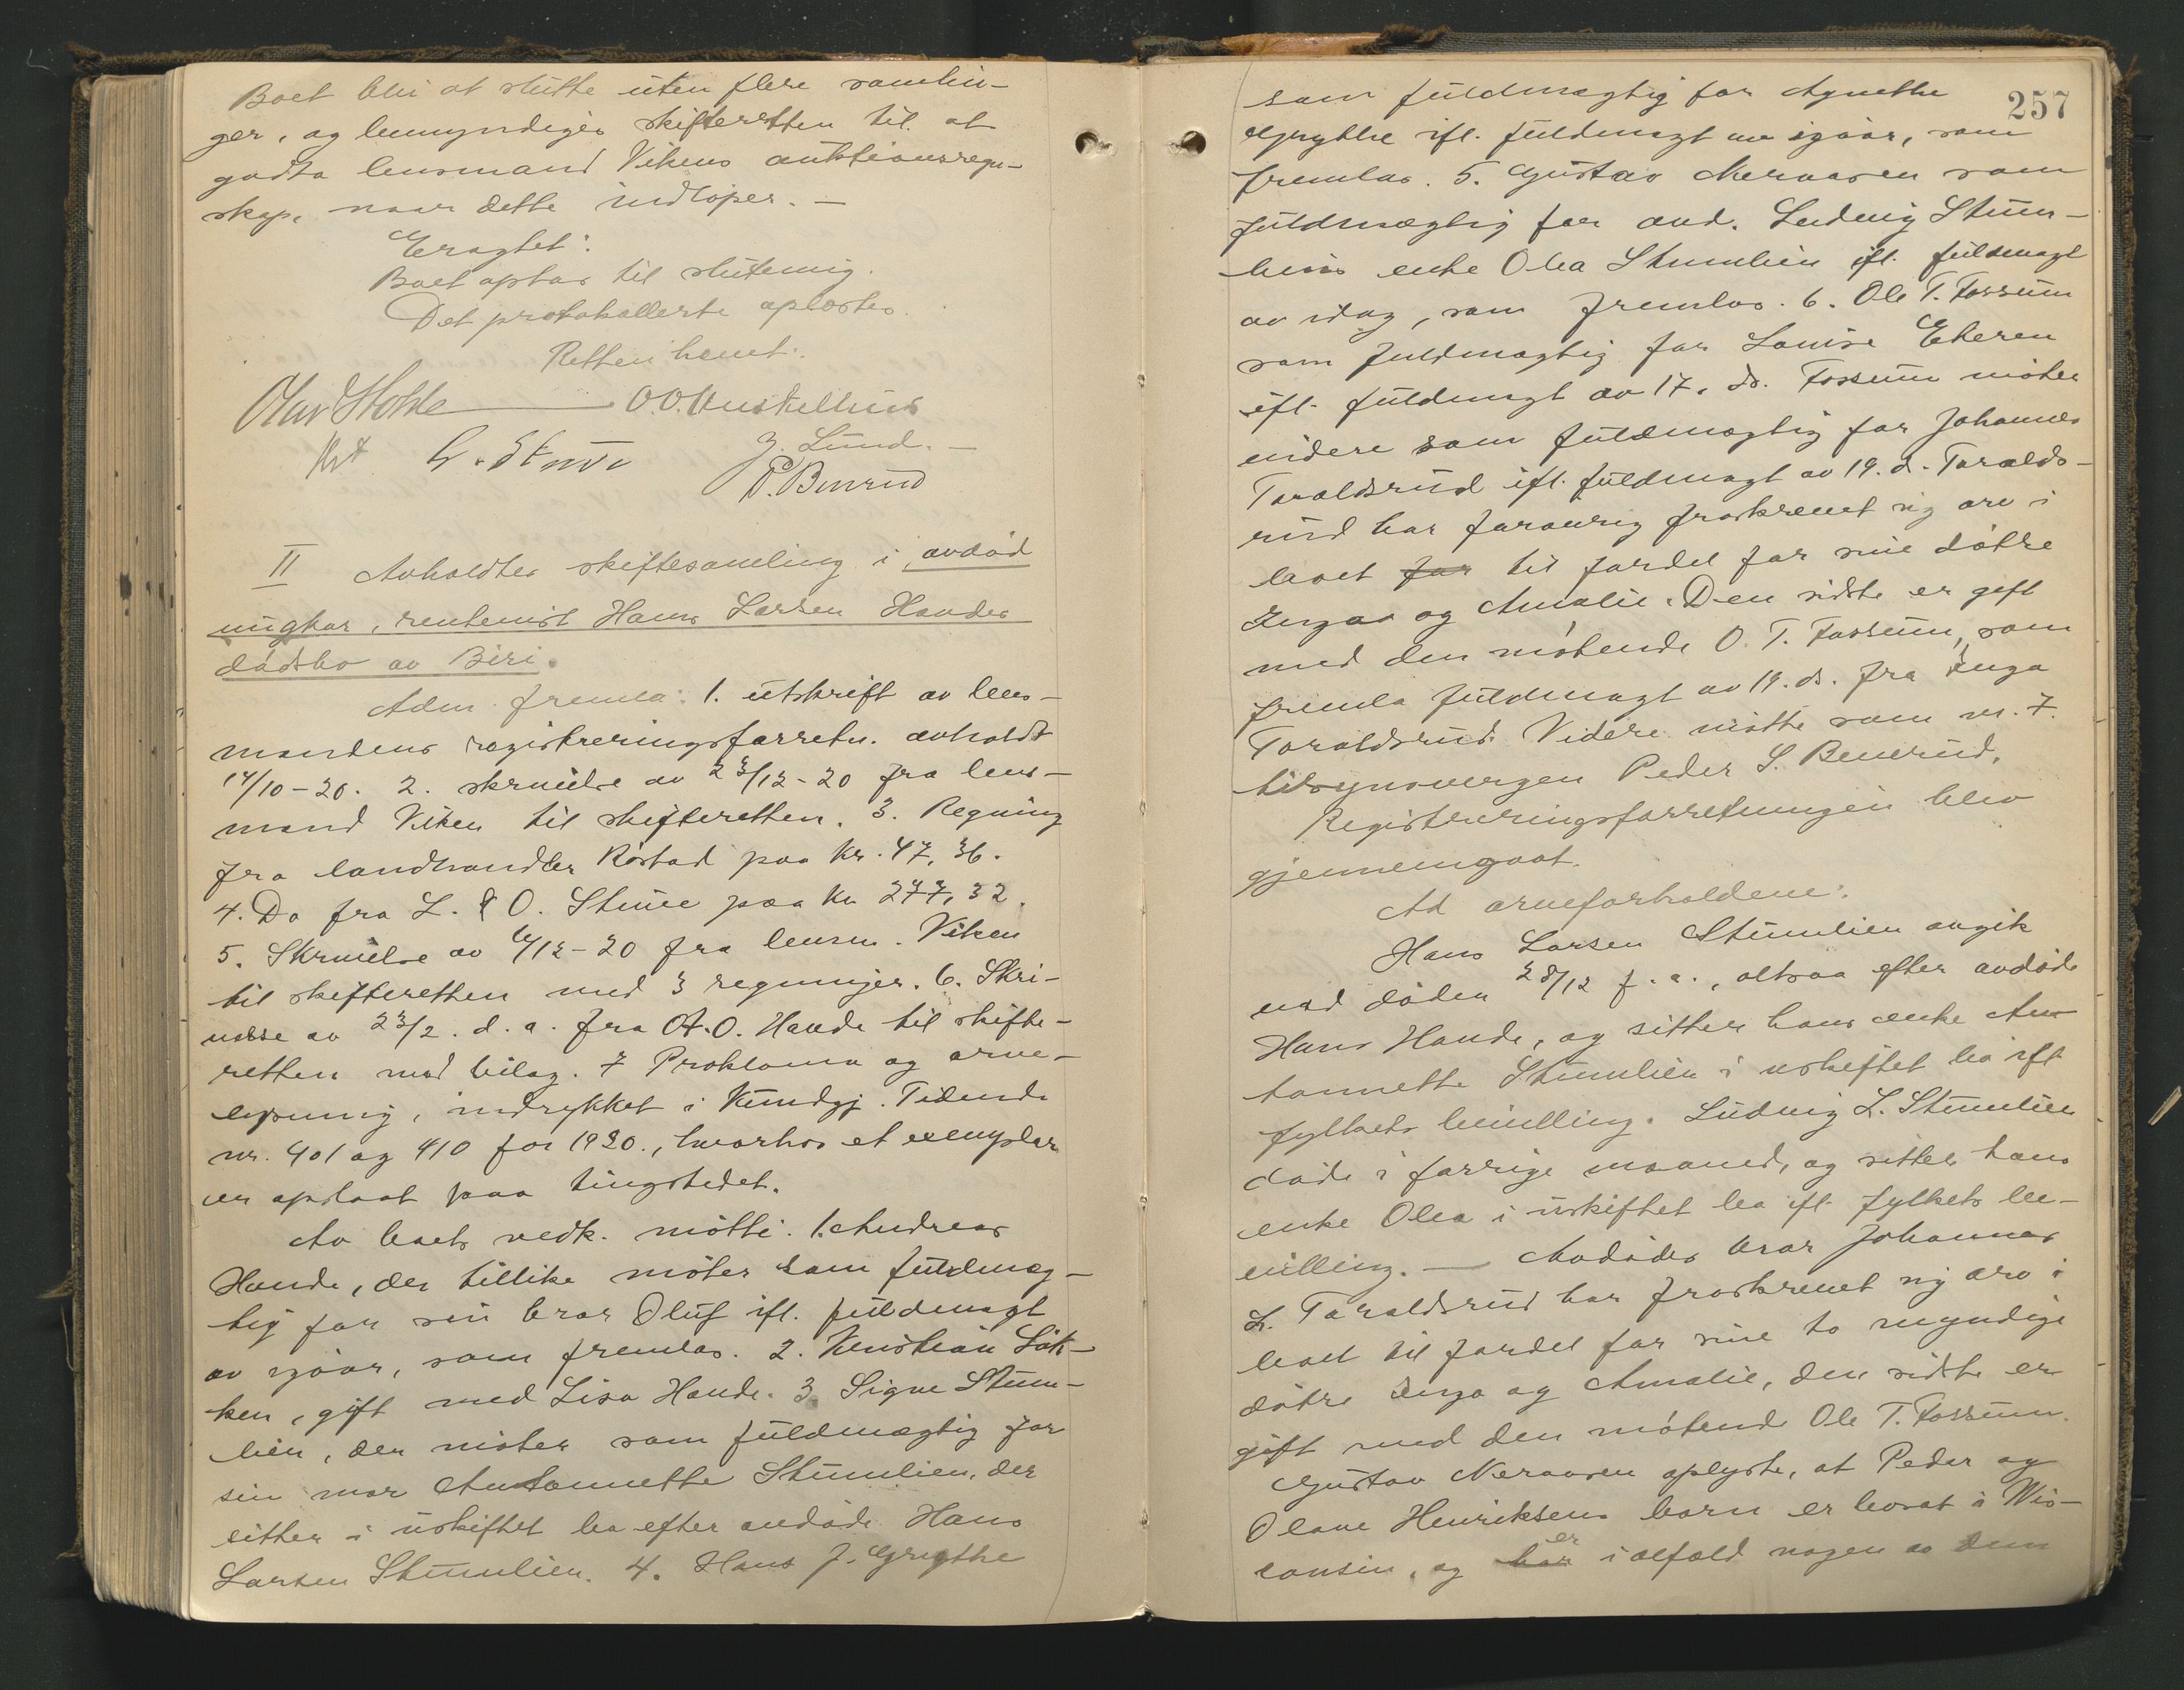 Boet blir at slutte uten flere samlin-
ger, og bemyndiges skifteretten til at
godta lensmand Vikens auktionsregn-
skap, naar dette indløper. —
Eragtet:
Boet optas til slutning.
Det protokollerte oplæstes.
Retten hevet.
O.O. Onskelhus
G. Stuve
J. Lund. —
P. Benrud
II Avholdtes skiftesamling i avdød
ungkar, rentenist Hans Larsen Haudes
dødsbo av Biri.
Adm. fremla: 1. utskrift av lens-
mandens registreringsforretn. avholdt
14/10-20. 2. skrivelse av 23/12-20 fra lens-
mand Viken til skifteretten. 3. Regning
fra landhandler Røstad paa kr. 47,36.
4. Do fra L. & O. Stuve paa kr 277,32.
5. Skrivelse av /12-20 fra lensm. Viken
til skifteretten med 3 regninger. 6. Skri-
velse av 23/2. d.a. fra A.O. Haude til skifte-
retten med bilag. 7 Proklama og arve-
lysning, indrykket i Kundgj. Tidende
nr. 401 og 410 for 1920., hvorhos et exemplar
er opslaat paa tingstedet.
Av boets vedk. møtte: 1. Andreas
Haude, der tillike møter som fuldmæg-
tig for sin bror Oluf ifl. fuldmagt
av igaar, som fremlas. 2. Kristian Løk-
ken, gift med Lisa Haude. 3. Signe Stum-
lien, der møter som fuldmægtig for
sin mor Antonette Stumlien, der
sitter i uskiftet bo efter avdøde Hans
Larsen Stumlien. 4. Hans J. Grythe
257
som fuldmægtig for Agnethe
Grythe ifl. fuldmagt av igaar, som
fremlas. 5. Gustav Neraasen som
fuldmægtig for avd. Ludvig Stum-
liens enke Olea Stumlien ifl. fuldmagt
av idag, som fremlas. 6. Ole T. Fossum
som fuldmægtig for Louise Ekeren
ifl. fuldmagt av 17. ds. Fossum møter
videre som fuldmægtig for Johannes
Toraldsrud ifl. fuldmagt av 19. d. Toralds-
rud har forøvrig fraskrevet sig arv i
boet for til fordel for sine døtre
Inga og Amalie. Den sidste er gift
med den møtende O. T. Fossum, som
fremla fuldmagt av 19. ds. fra Inga
Toraldsrud. Videre møtte som nr. 7.
tilsynsvergen Peder S. Benerud.
Registreringsforretningen blev
gjennemgaat.
Ad arveforholdene:
Hans Larsen Stumlien avgik
ved døden 28/12 f.a., altsaa efter avdøde
Hans Haude, og sitter hans enke An-
tonnette Stumlien i uskiftet bo ifl
fylkets bevilling. Ludvig L. Stumlien
døde i forrige maaned, og sitter hans
enke Olea i uskiftet bo ifl. fylkets be-
villing. — Avdødes bror Johannes
L. Toraldsrud har fraskrevet sig arv i
boet til fordel for sine to myndige
døtre Inga og Amalie, den sidste er
gift med den møtende Ole T. Fossum.
Gustav Neraasen oplyste, at Peder og
Olave Henriksens barn er bosat i Wis-
consin, og har er ialfald nogen av dem